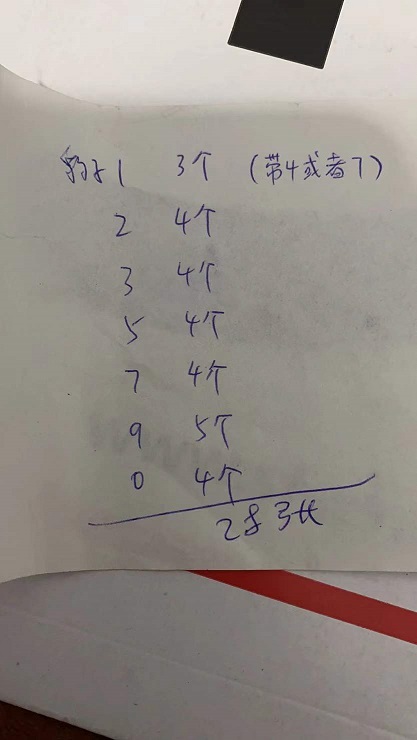 豹子1 3个 (带4或者7)
2 4个
3 4个
5 4个
7 4个
9 5个
0 4个
28张